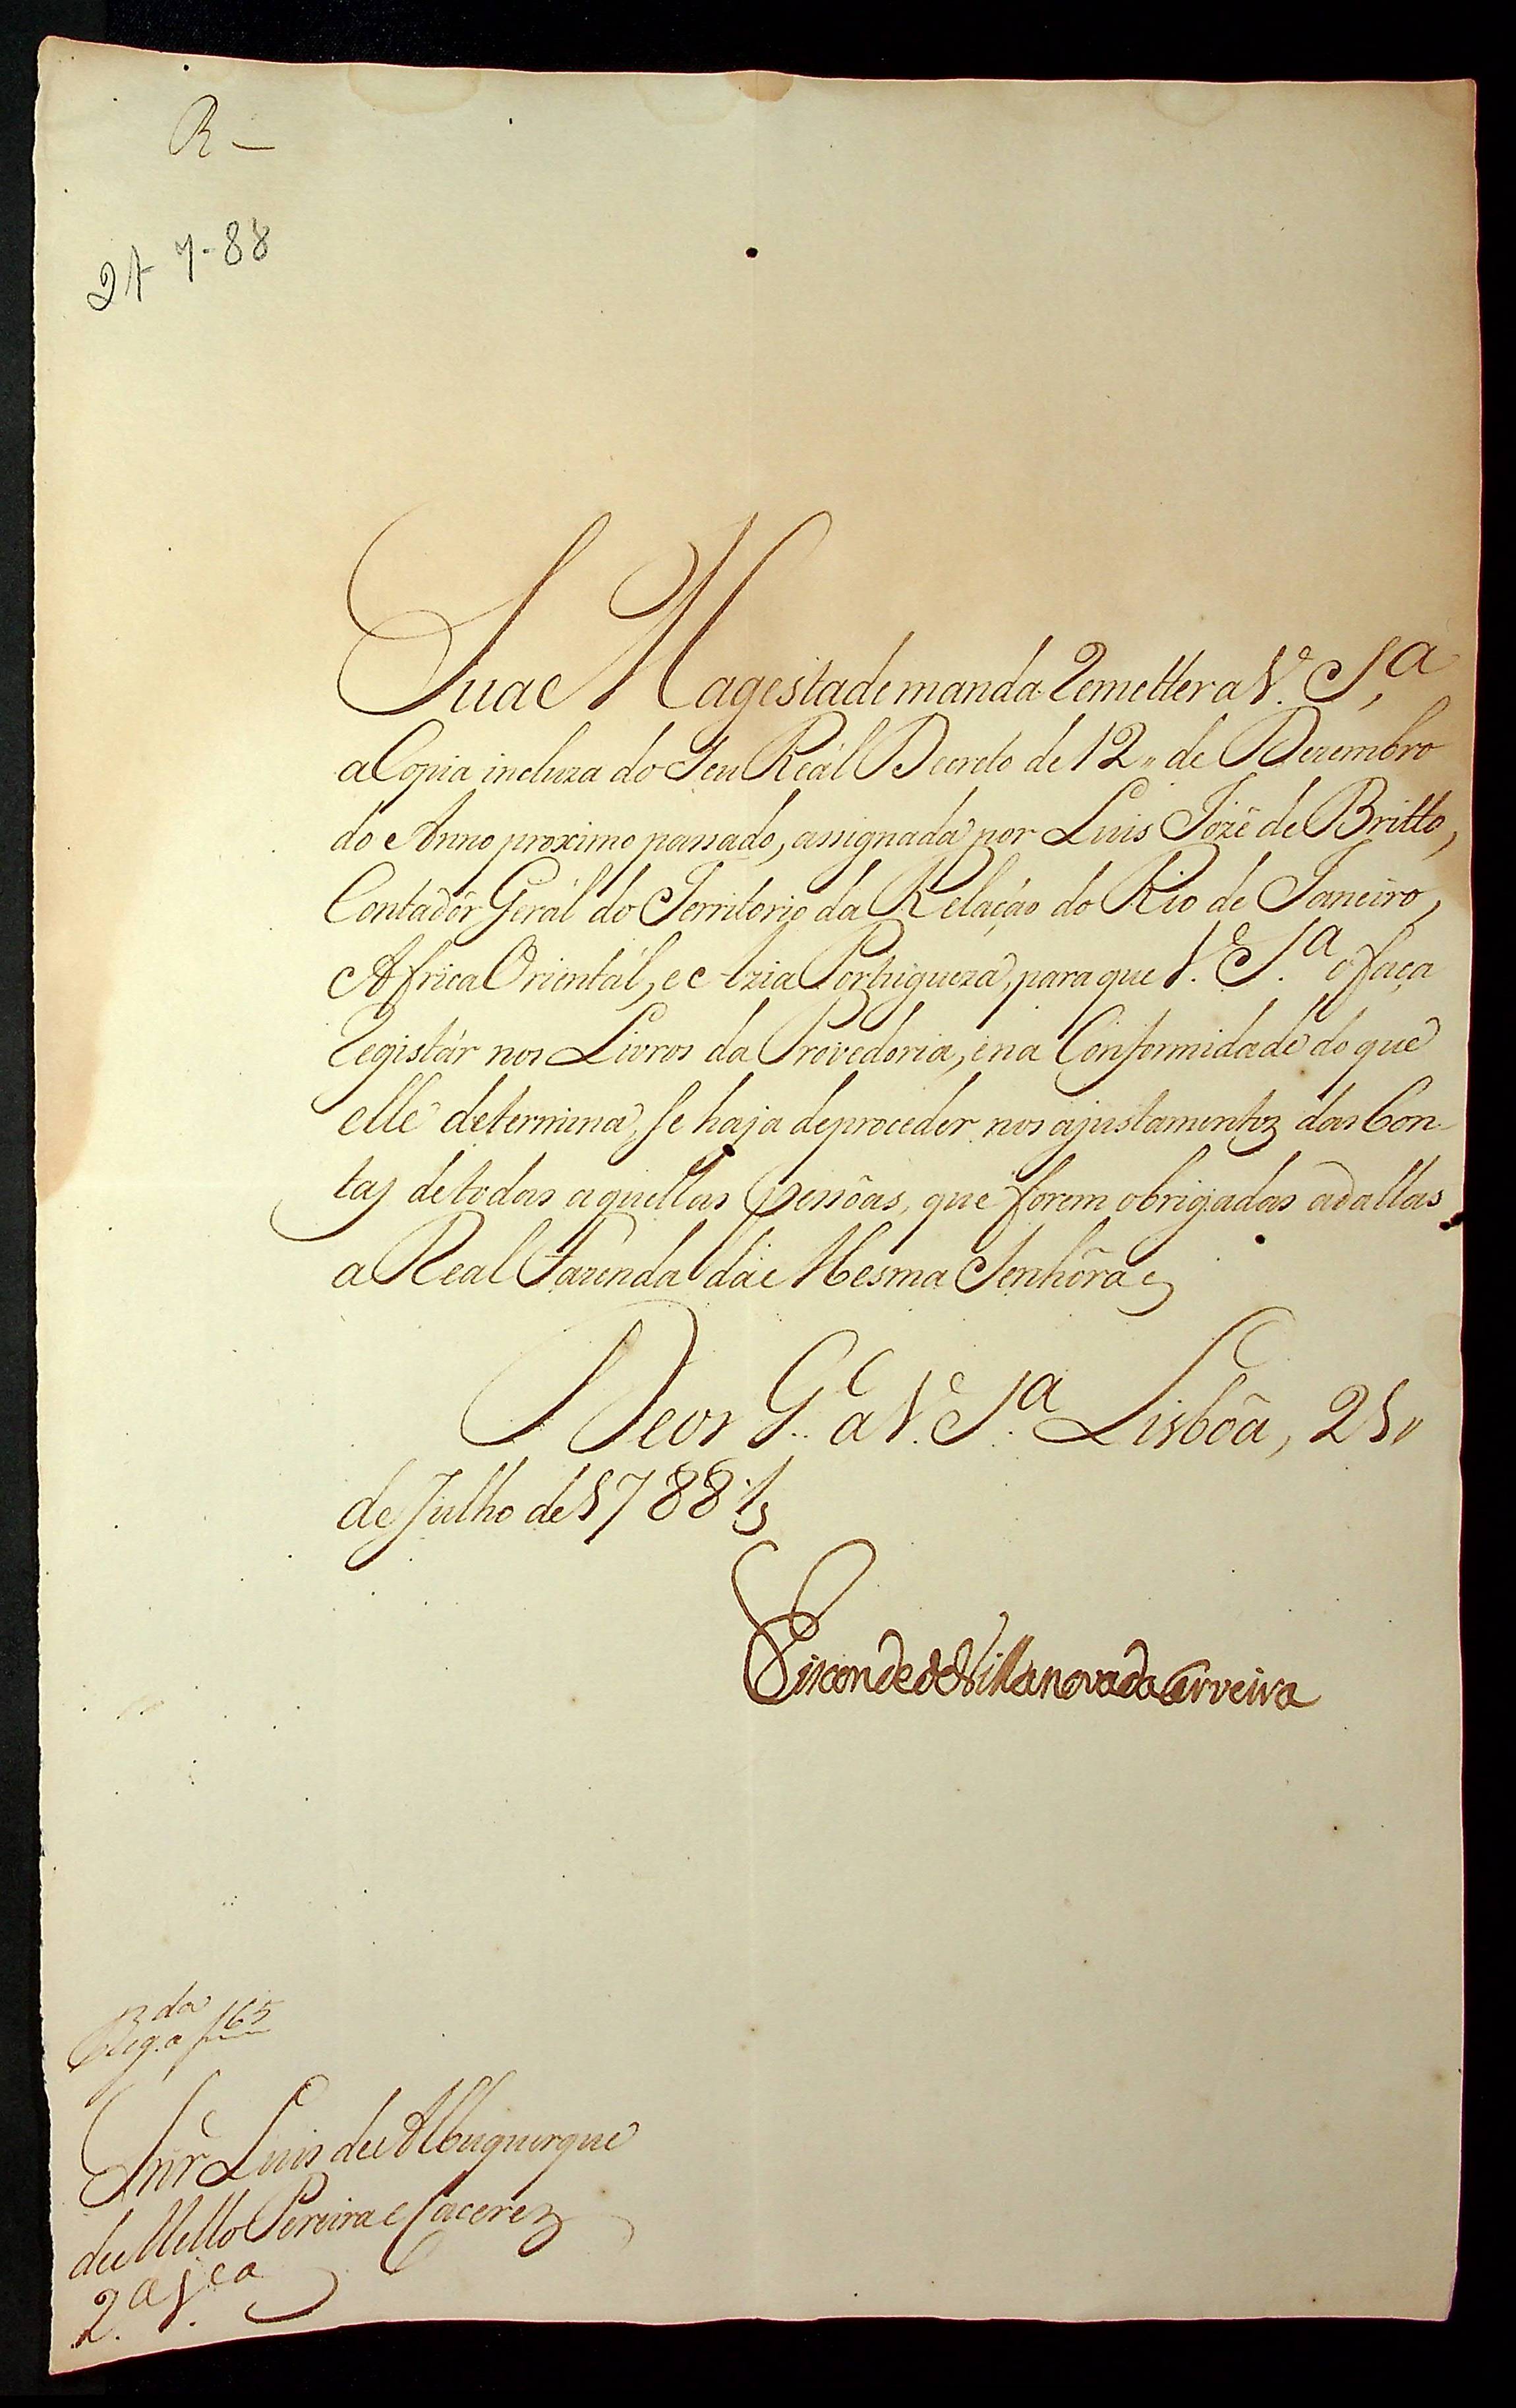 R —
21 7-88
Sua Magestade manda Remetter a V. S.ª
a Copia incluza do Seu Reál Decreto de 12,, de Dezembro
do Anno proximo passado, assignada por Luis Jozé de Britto,
Contadôr Gerál do Territorio da Relação do Rio de Janeiro,
Africa Orientál, e Azia Portugueza, para que V. S.ª o faça
Registár nos Livros da Provedoria, e na Conformidade do que
elle determina, se haja de proceder nos ajustamentos das Con-
tas de todas aquellas pessôas, que forem obrigadas a dallas
a Real Fazenda da Mesma Senhôra
Deos G.e a V. S.ª Lisbôa, 21,,
de Julho de 1788
Visconde de Villanova da Cerveira
Reg.da a f 165
Snr Luis de Albuquerque
de Mello Pereira e Cacerez
2.ª V.ca